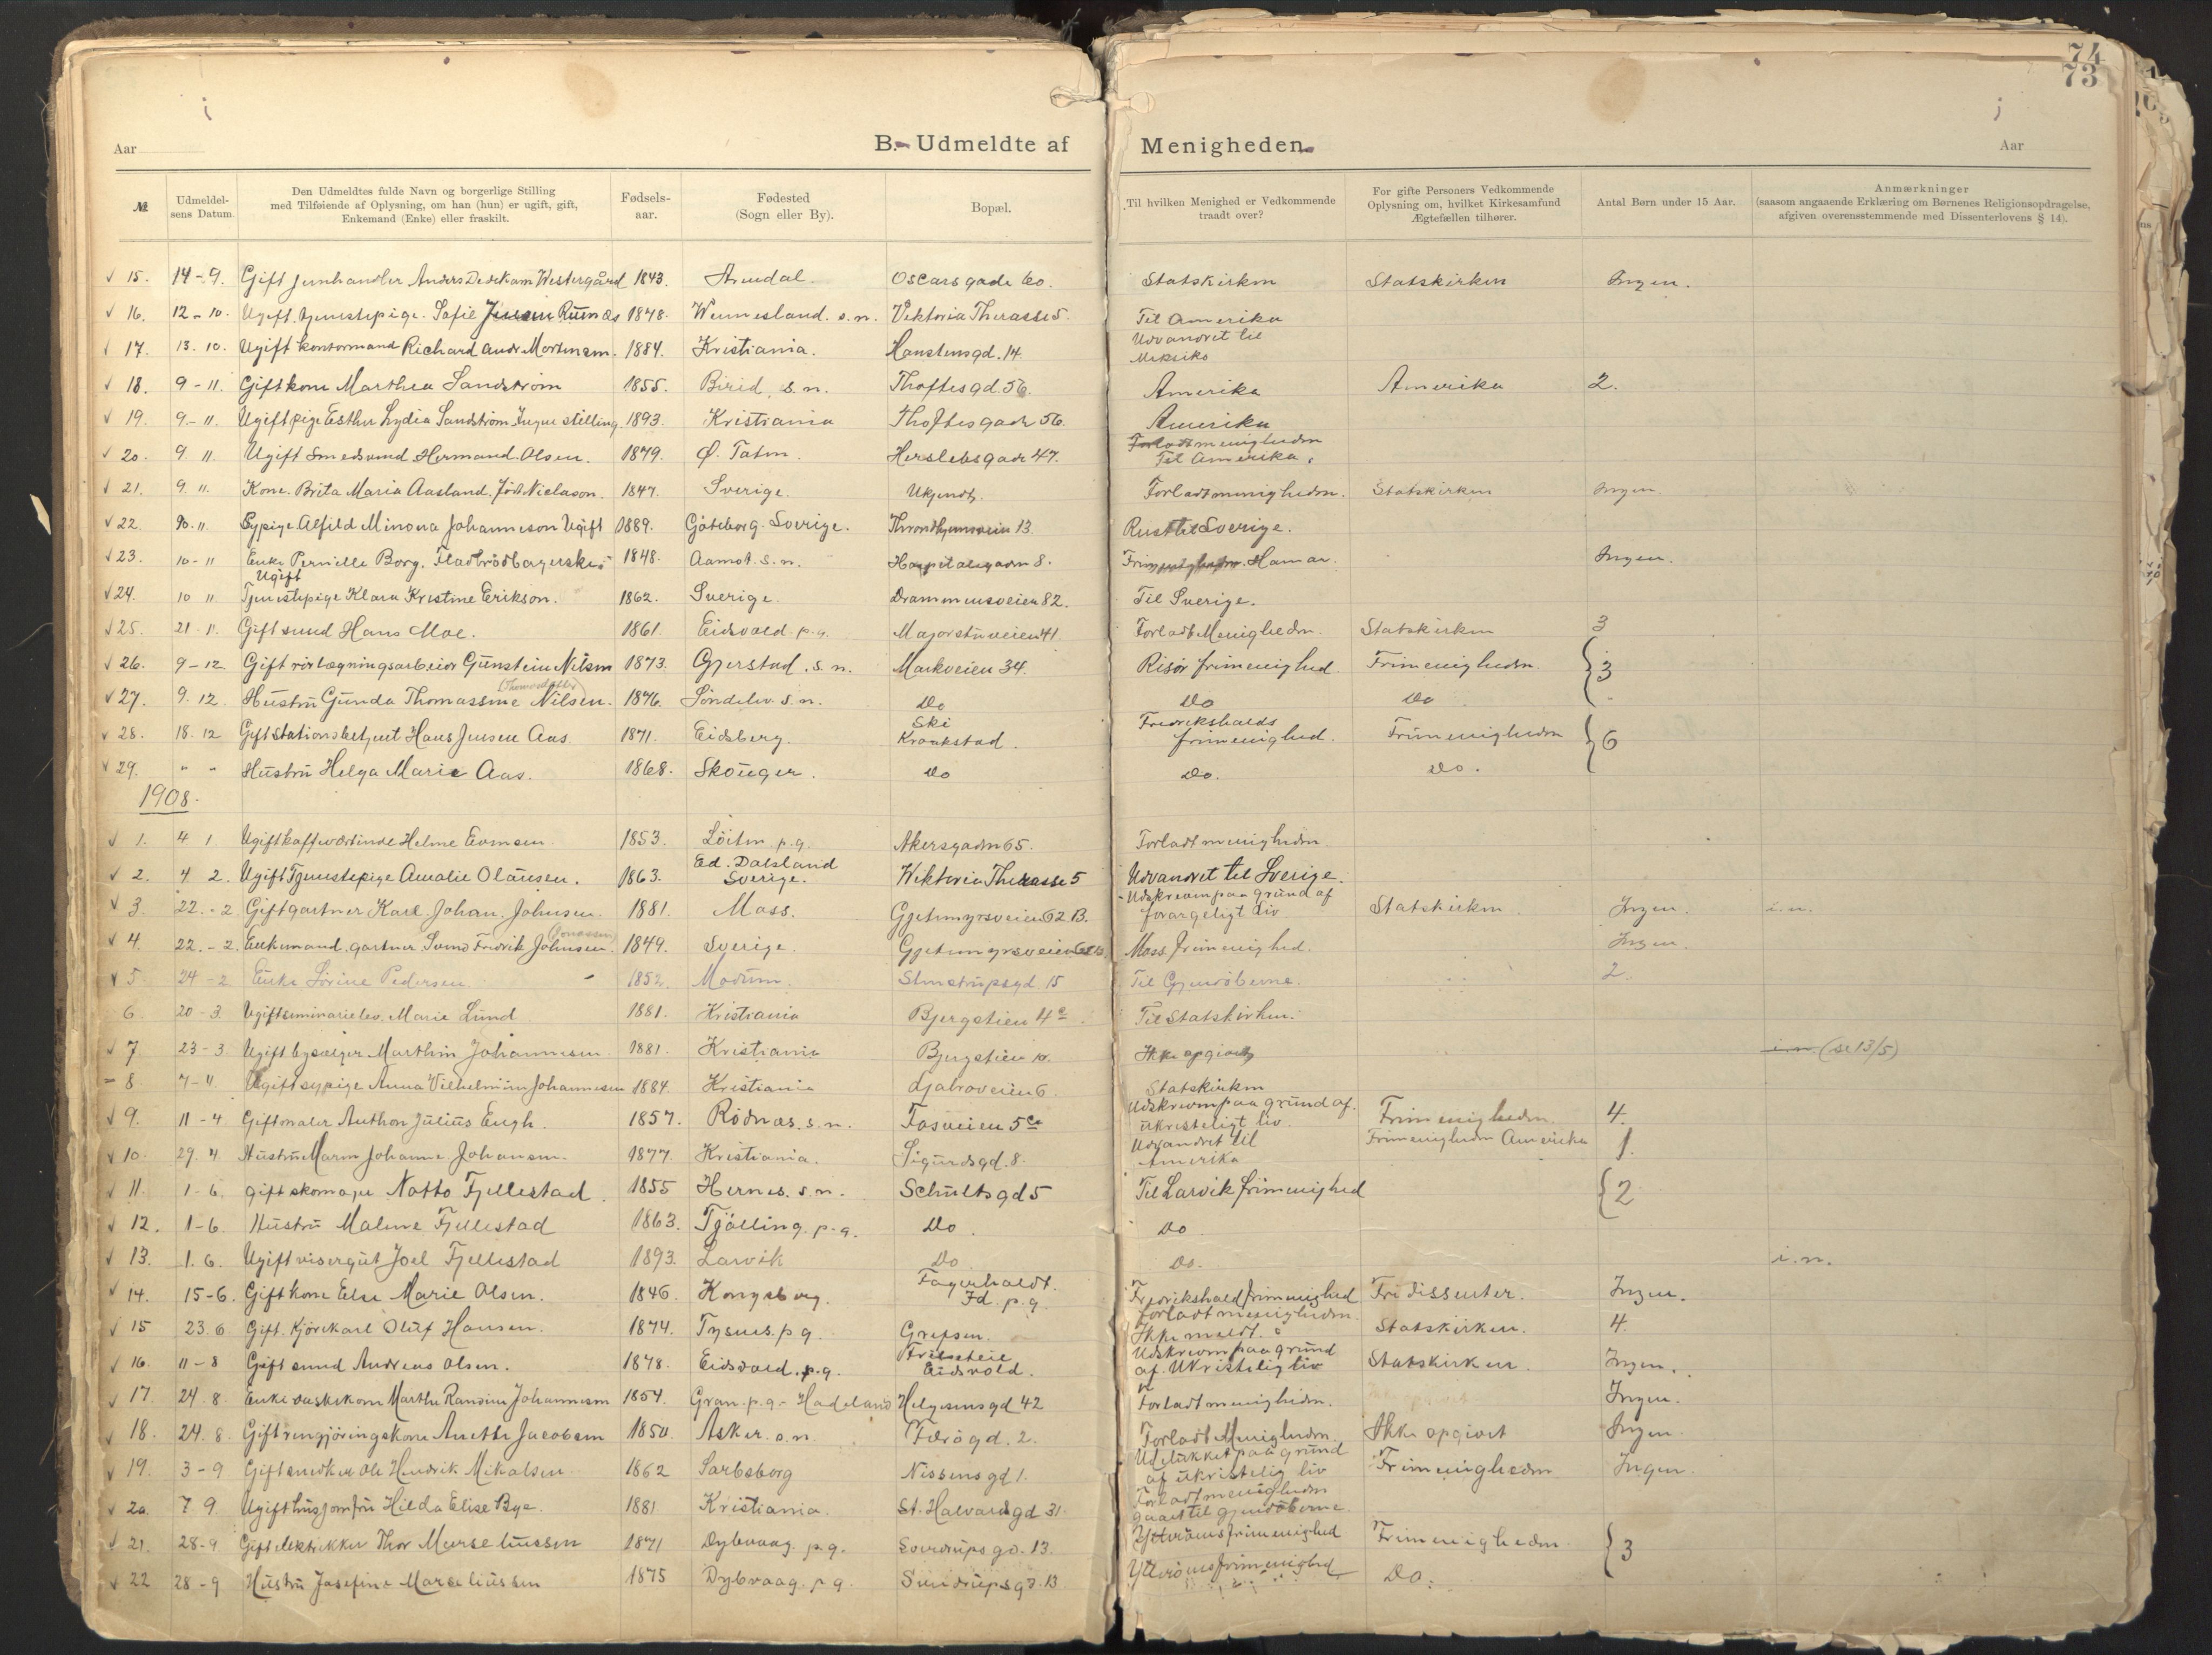 74
73
Aar
B. Udmeldte af Menigheden
Aar
№
Udmeldel-
sens Datum.
Den Udmeldtes fulde Navn og borgerlige Stilling
med Tilføiende af Oplysning, om han (hun) er ugift, gift,
Enkemand (Enke) eller fraskilt.
Fødsels-
aar.
Fødested
(Sogn eller By).
Bopæl.
Til hvilken Menighed er Vedkommende
traadt over?
For gifte Personers Vedkommende
Oplysning om, hvilket Kirkesamfund
Ægtefællen tilhører.
Antal Børn under 15 Aar.
Anmærkninger
(saasom angaaende Erklæring om Børnenes Religionsopdragelse,
afgiven overensstemmende med Dissenterlovens § 14).
15. 14-9. Gift Jernhandler Anders Westergård 1843. Arendal. Oscarsgade 60. Statskirken Statskirken Ingen.
16. 12-10. Ugift tjenestepige Sofie 1848. Wennesland s.n. Viktoria Therasse 5. Til Amerika
17. 13.10. Ugift kontormand Richard Andr Mortensen. 1884. Kristiania. Hanstensgd. 14. Udvandret til
Meksiko
18. 9-11. Gift kone Marthea Sandström 1855. Birid, s.n. Thoftesgd 56. Amerika Amerika 2.
19. 9-11. Ugift pige Esther Lydia Sandström Ingen stilling 1893. Kristiania Thoftesgade 56. Amerika
20. 9.11. Ugift Smedsvend Hermand Olsen. 1879. Ø. Toten. Herslebsgade 47. Forladt menigheden
Til Amerika.
21. 9.11. Kone. Brita Maria Aasland. född Niclason. 1847. Sverige. Ukjendt. Forladt menigheden. Statskirken Ingen.
22. 10.11. Sypige Alfild Minona Johanneson Ugift 1889. Göteborg. Sverige. Throndhjemsvein 13. Reist til Sverige.
23. 10-11 Enke Pernille Borg. Fladbrödbagerske 1848. Aamot. s.n. Hospitalsgaden 8. Hamar. Ingen.
Ugift
24. 10 11 Tjenstepige Klara Kristine Erikson. 1862. Sverige. Drammensveien 82. Til Sverige.
25. 21-11. Gift svend Hans Moe. 1861. Eidsvold p.g. Majorstuveien 41. Forladt Menigheden. Statskirken 3
26. 9-12 Gift rörlægningsarbeider Gunstein Nilsen 1873. Gjerstad. s.n. Markveien 34. Risör frimenighed Frimenigheden. 3
27. 9.12. Hustru Gunda Thomassine Nilsen. 1876. Söndelev. s.n. Do Do Do
28. 18.12 Gift Stationsbetjent Hans Jensen Aas 1871. Eidsberg. Ski
Kraakstad. Fredrikshalds
frimenighed. Frimenigheden 6
29. " " Hustru Helga Marie Aas. 1868. Skouger. Do Do. Do.
1908.
1. 4 1 Ugift kaffeværtinde Helene Evensen 1853. Löiten p.g. Akersgaden 65. Forladt menigheden
2. 4 2. Ugift Tjenestepige Amalie Olausen. 1863. Ed. Dalsland
Sverige. Wiktoria Therasse 5 Udvandret til Sverige.
3. 22.-2 Gift gartner Karl Johan Johnsen. 1881. Moss. Gjetemyrsveien 62 B. Udskreven paa grund af
forargeligt liv Statskirken Ingen. i.n.
4. 22.-2. Enkemand. gartner. Svend Fredrik Johnsen. (Jonassen) 1849. Sverige. Gjetemyrsveien Moss frimenighed. Ingen.
5 24-2 Enke Sörine Pedersen 1852. Modum. Stenstrupsgd. 15 Til Gjendöberne. 2.
6. 20-3. Ugift seminarielev. Marie Lund 1881. Kristiania Bjergstien 4 Til Statskirken.
7 23-3 Ugift bysælger Marthin Johannesen. 1881. Kristiania Bjergstien 10. Ikke opgivet i.n. (se 13/5)
8. 7-4. Ugift sypige Anna Vilhelmine Johannesen 1884. Kristiania Ljabroveien 6. Statskirken
9. 11-4. Gift maler Anthon Julius Engh. 1857. Rödnæs. s.n. Tosveien 5 Udskreven paa grund af
ukristeligt liv. Frimenigheden 4.
10. 29.4. Hustru Maren Johanne Johansen. 1877. Kristiania. Sigurdsgd. 8. Udvandret til
Amerika Frimenigheden Amerika 1.
11. 1-6. gift skomager Notto Fjellestad. 1855 Hernes. s.n. Schultsgd 5 Til Larvik frimenighed 2
12. 1-6. Hustru Malene Fjellestad 1863. Tjölling. p.g. Do. Do
13. 1.6. Ugift visergut Joel Fjellestad 1893. Larvik Do Do. i.n.
14. 15-6. Gift kone Else Marie Olsen. 1846. Kongsberg. Fagerholdt.
Id. p.g. Fredrikshald frimenighed Fri dissenter. Ingen.
15 23.6 Gift. Kjörekarl Oluf Hansen. 1874. Tysnes. p.g. Grefsen. Forladt menigheden.
Ikke meldt. Statskirken. 4.
16. 11-8 Gift svend Andreas Olsen. 1878. Eidsvold. p.g. Eidsvold. Udskreven paa grund
af Ukristelig liv Statskirken. Ingen.
17 24.8. Enke vaskekone Marthe Johannesen 1854. Gran p.g. Hadeland Helgesensgd 42 Forladt menigheden. Ingen.
18. 24.8. Gift rengjöringskone Anette Jacobsen 1850. Asker. s.n. Færögd. 2. Forladt Menigheden. Ikke opgivet Ingen.
19. 3-9 Gift snedker Ole Hendrik Mikalsen 1862 Sarbsborg Nissensgd 1. Udelukket paa grund
af ukristelig liv Frimenigheden Ingen.
20. 7.9. Ugift husjomfru Hilda Elise Bye. 1881 Kristiania. St. Halvardsgd 31. Forladt menigheden
gaaet til gjendöberne.
21. 28-9. Gift elektriker Thor Marseliussen 1871 Dybvaag. p.g. Sverdrupsgd. 13. frimenighed Frimenigheden 3
22 28-9 Hustru Josefine Marseliussen 1875 Dybvaag. p.g. Sverdrupsgd. 13 frimenighed Do.